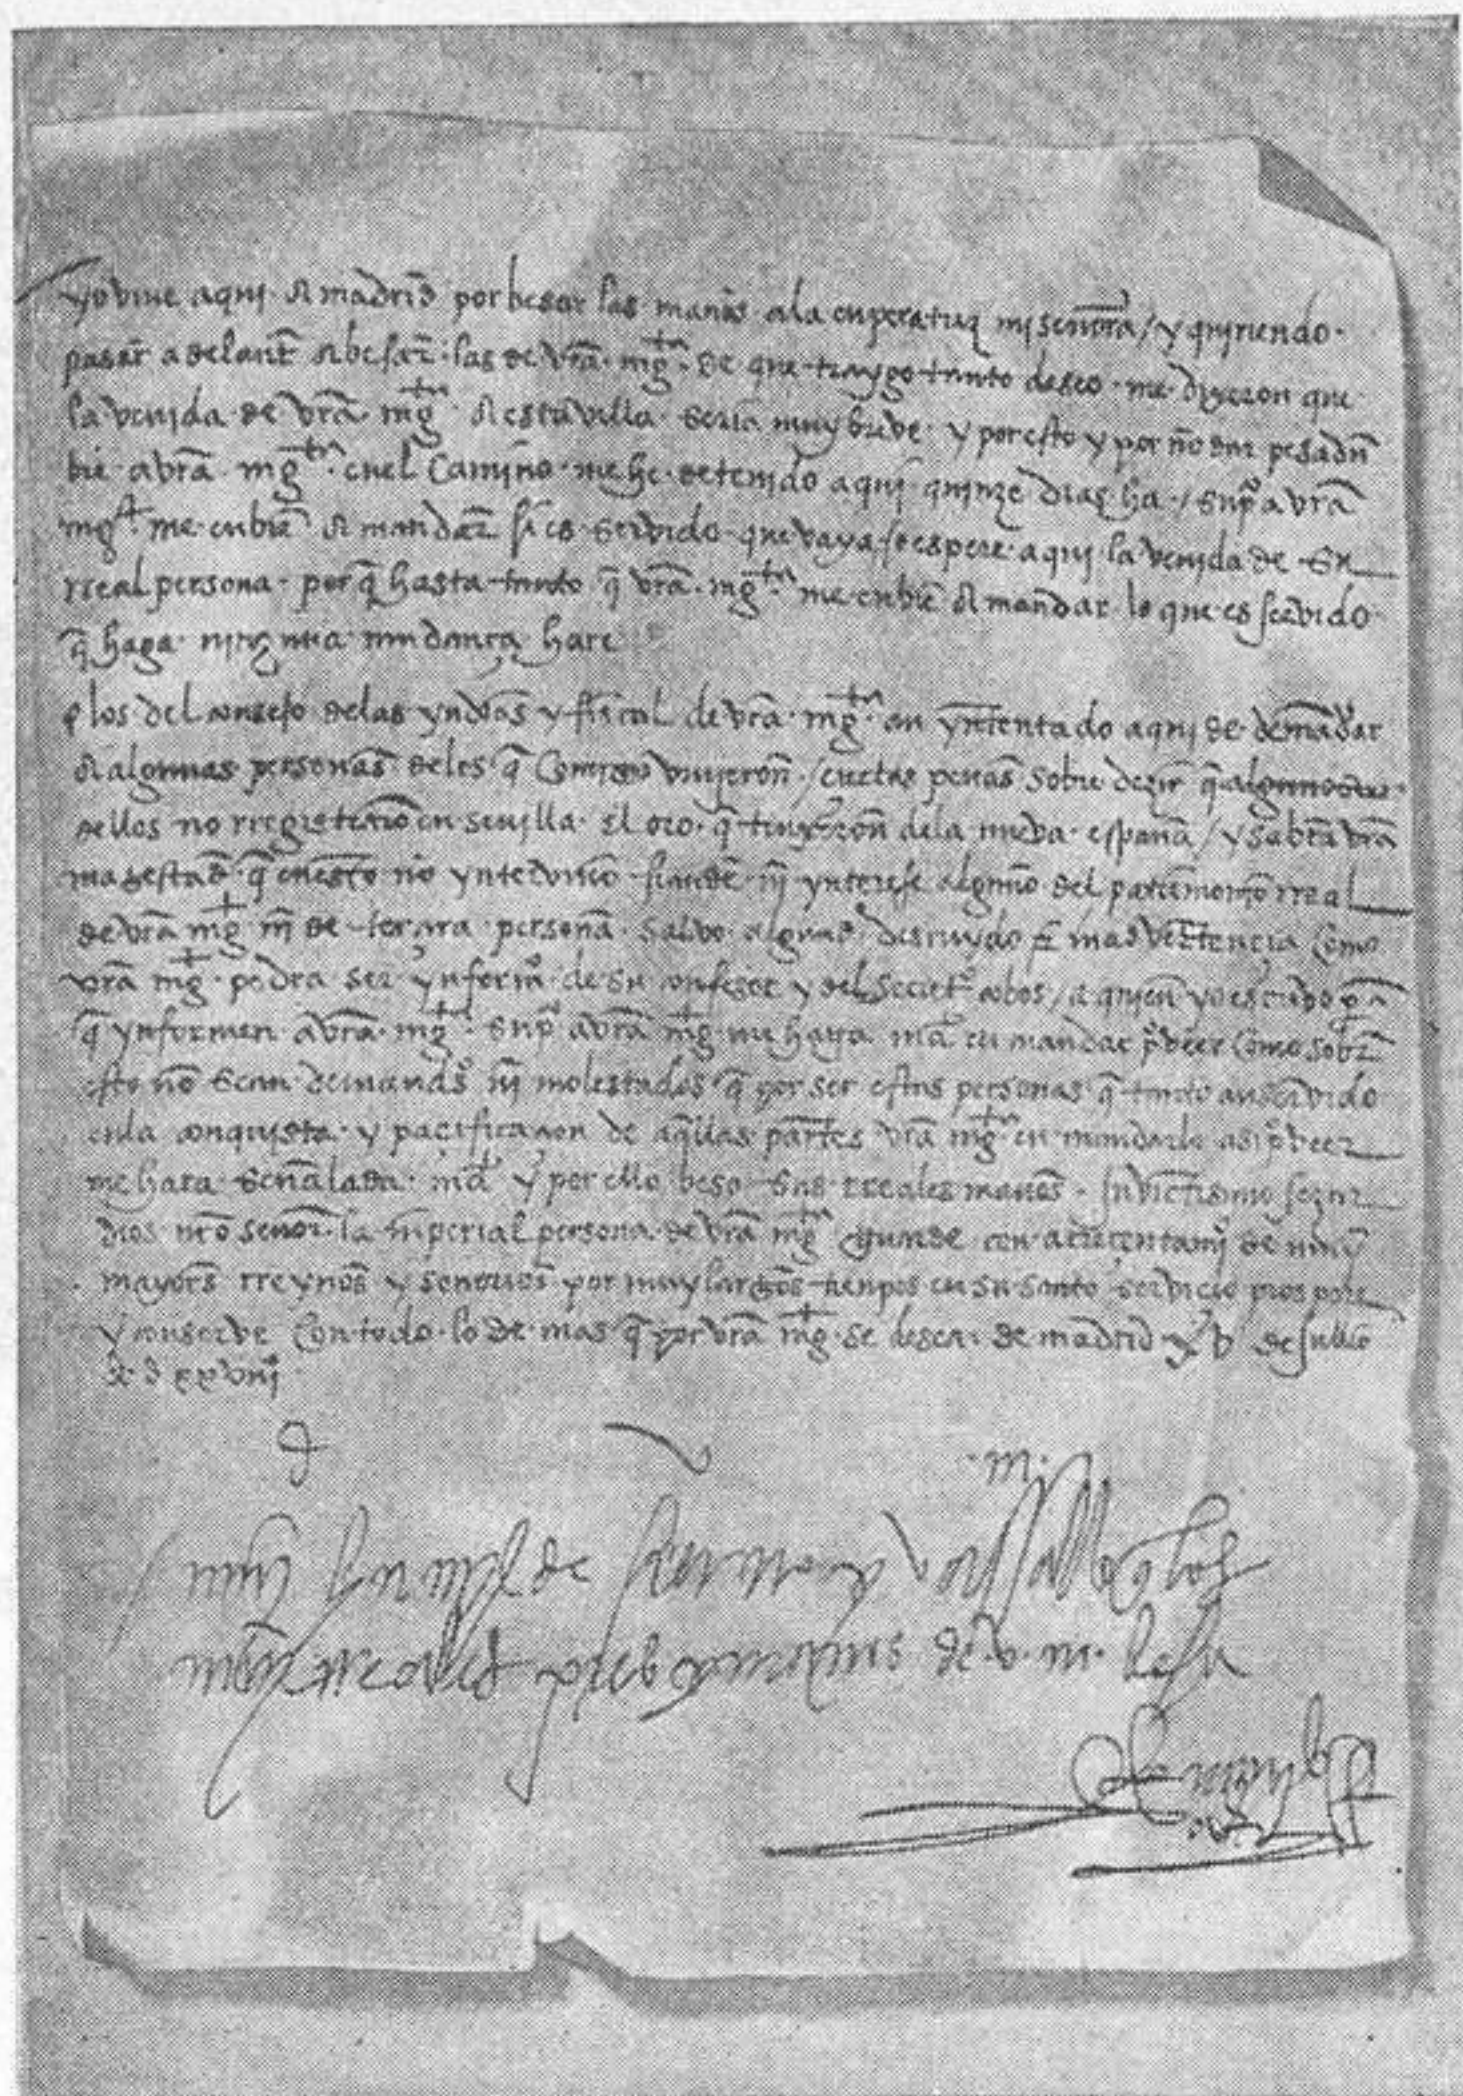 yo vine aqui a madrid por besar las manos a la enperatriz mi señora / y quiriendo
pasar adelante a besar las de vrã mgt de que traygo tanto deseo me dixeron que
la venida de vrã mgt a esta villa seria muy breve y por esto y por no dar pesadũ
bre a vrã mgt en el camino me he detenido aqui quinze dias ha / supco a vrã
mgt me enbie a mandar si es servido que vaya / o espere aqui la venida de su
rreal persona porq̃ hasta tanto q̃ vrã mgt me enbie a mandar lo que es servido
q̃ haga ninguna mudança hare
los del consejo de las yndias y fiscal de vrã mgt an yntentado aqui de demãdar
a algunas personas de los q̃ comigo vinieron / ciertas penas sobre dezir q̃ algunos
dellos no rregistraron en sevilla el oro q̃ truxeron de la nueva españa / y sabra vrã
magestad q̃ en esto no yntervino fraude ni ynterese alguno del patrimonio rreal
de vrã mgt ni de tercera persona salvo algund descuydo e inadvertencia como
vrã mgt podra ser ynformdo de su confesor y del secretro cobos / a quien yo escrivo pa
q̃ ynformen a vrã mgt supco a vrã mgt me haga md en mandar proveer como sobre
esto no sean demandados ni molestados q̃ por ser estas personas q̃ tanto an servido
en la conquista y pacificacion de aq̃llas partes vrã mgt en mandarlo asi proveer
me hara señalada md y por ello beso sus rreales manos invictisimo señor
dios nrõ señor la inperial persona de vrã mgt guarde con acrecentamio de muy
mayores rreynos y señorios por muy largos tienpos en su santo servicio prospere
y conserve con todo lo demas q̃ por vrã mgt se desea de madrid xv de jullio
de d xx viii
.m.
de v. m.